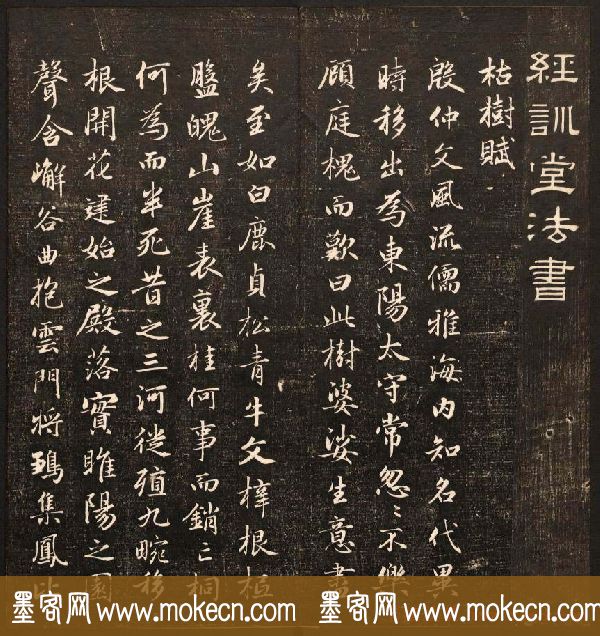 經訓堂法書
枯樹賦
殷仲文風流儒雅海内知名代異
時移出為東陽太守常忽〻不樂
顧庭槐而歎曰此樹婆娑生意盡
矣至如白鹿貞松青牛文梓根柢
盤魄山崖表裏桂何事而銷亡桐
何為而半死昔之三河徙殖九畹移
根開花建始之殿落實睢陽之園
聲含嶰谷曲抱雲門將鶵集鳳比
墨客网 www.mokecn.com 墨客网 www.mokecn.com